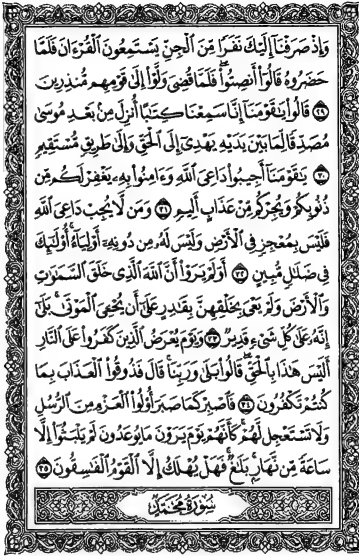 وَإِذۡ صَرَفۡنَآ إِلَيۡكَ نَفَرٗا مِّنَ ٱلۡجِنِّ يَسۡتَمِعُونَ ٱلۡقُرۡءَانَ فَلَمَّا
حَضَرُوهُ قَالُوٓاْ أَنصِتُواْۖ فَلَمَّا قُضِيَ وَلَّوۡاْ إِلَىٰ قَوۡمِهِم مُّنذِرِينَ
٢٩ قَالُواْ يَٰقَوۡمَنَآ إِنَّا سَمِعۡنَا كِتَٰبًا أُنزِلَ مِنۢ بَعۡدِ مُوسَىٰ
مُصَدِّقٗا لِّمَا بَيۡنَ يَدَيۡهِ يَهۡدِيٓ إِلَى ٱلۡحَقِّ وَإِلَىٰ طَرِيقٖ مُّسۡتَقِيمٖ
٣٠ يَٰقَوۡمَنَآ أَجِيبُواْ دَاعِيَ ٱللَّهِ وَءَامِنُواْ بِهِۦ يَغۡفِرۡ لَكُم مِّن
ذُنُوبِكُمۡ وَيُجِرۡكُم مِّنۡ عَذَابٍ أَلِيمٖ ٣١ وَمَن لَّا يُجِبۡ دَاعِيَ ٱللَّهِ
فَلَيۡسَ بِمُعۡجِزٖ فِي ٱلۡأَرۡضِ وَلَيۡسَ لَهُۥ مِن دُونِهِۦٓ أَوۡلِيَآءُۚ أُوْلَٰٓئِكَ
فِي ضَلَٰلٖ مُّبِينٍ ٣٢ أَوَلَمۡ يَرَوۡاْ أَنَّ ٱللَّهَ ٱلَّذِي خَلَقَ ٱلسَّمَٰوَٰتِ
وَٱلۡأَرۡضَ وَلَمۡ يَعۡيَ بِخَلۡقِهِنَّ بِقَٰدِرٍ عَلَىٰٓ أَن يُحۡـِۧيَ ٱلۡمَوۡتَىٰۚ بَلَىٰٓ
إِنَّهُۥ عَلَىٰ كُلِّ شَيۡءٖ قَدِيرٞ ٣٣ وَيَوۡمَ يُعۡرَضُ ٱلَّذِينَ كَفَرُواْ عَلَى ٱلنَّارِ
أَلَيۡسَ هَٰذَا بِٱلۡحَقِّۖ قَالُواْ بَلَىٰ وَرَبِّنَاۚ قَالَ فَذُوقُواْ ٱلۡعَذَابَ بِمَا
كُنتُمۡ تَكۡفُرُونَ ٣٤ فَٱصۡبِرۡ كَمَا صَبَرَ أُوْلُواْ ٱلۡعَزۡمِ مِنَ ٱلرُّسُلِ
وَلَا تَسۡتَعۡجِل لَّهُمۡۚ كَأَنَّهُمۡ يَوۡمَ يَرَوۡنَ مَا يُوعَدُونَ لَمۡ يَلۡبَثُوٓاْ إِلَّا
سَاعَةٗ مِّن نَّهَارِۭۚ بَلَٰغٞۚ فَهَلۡ يُهۡلَكُ إِلَّا ٱلۡقَوۡمُ ٱلۡفَٰسِقُونَ ٣٥
سُورَةُ مُحَمَّدٍ